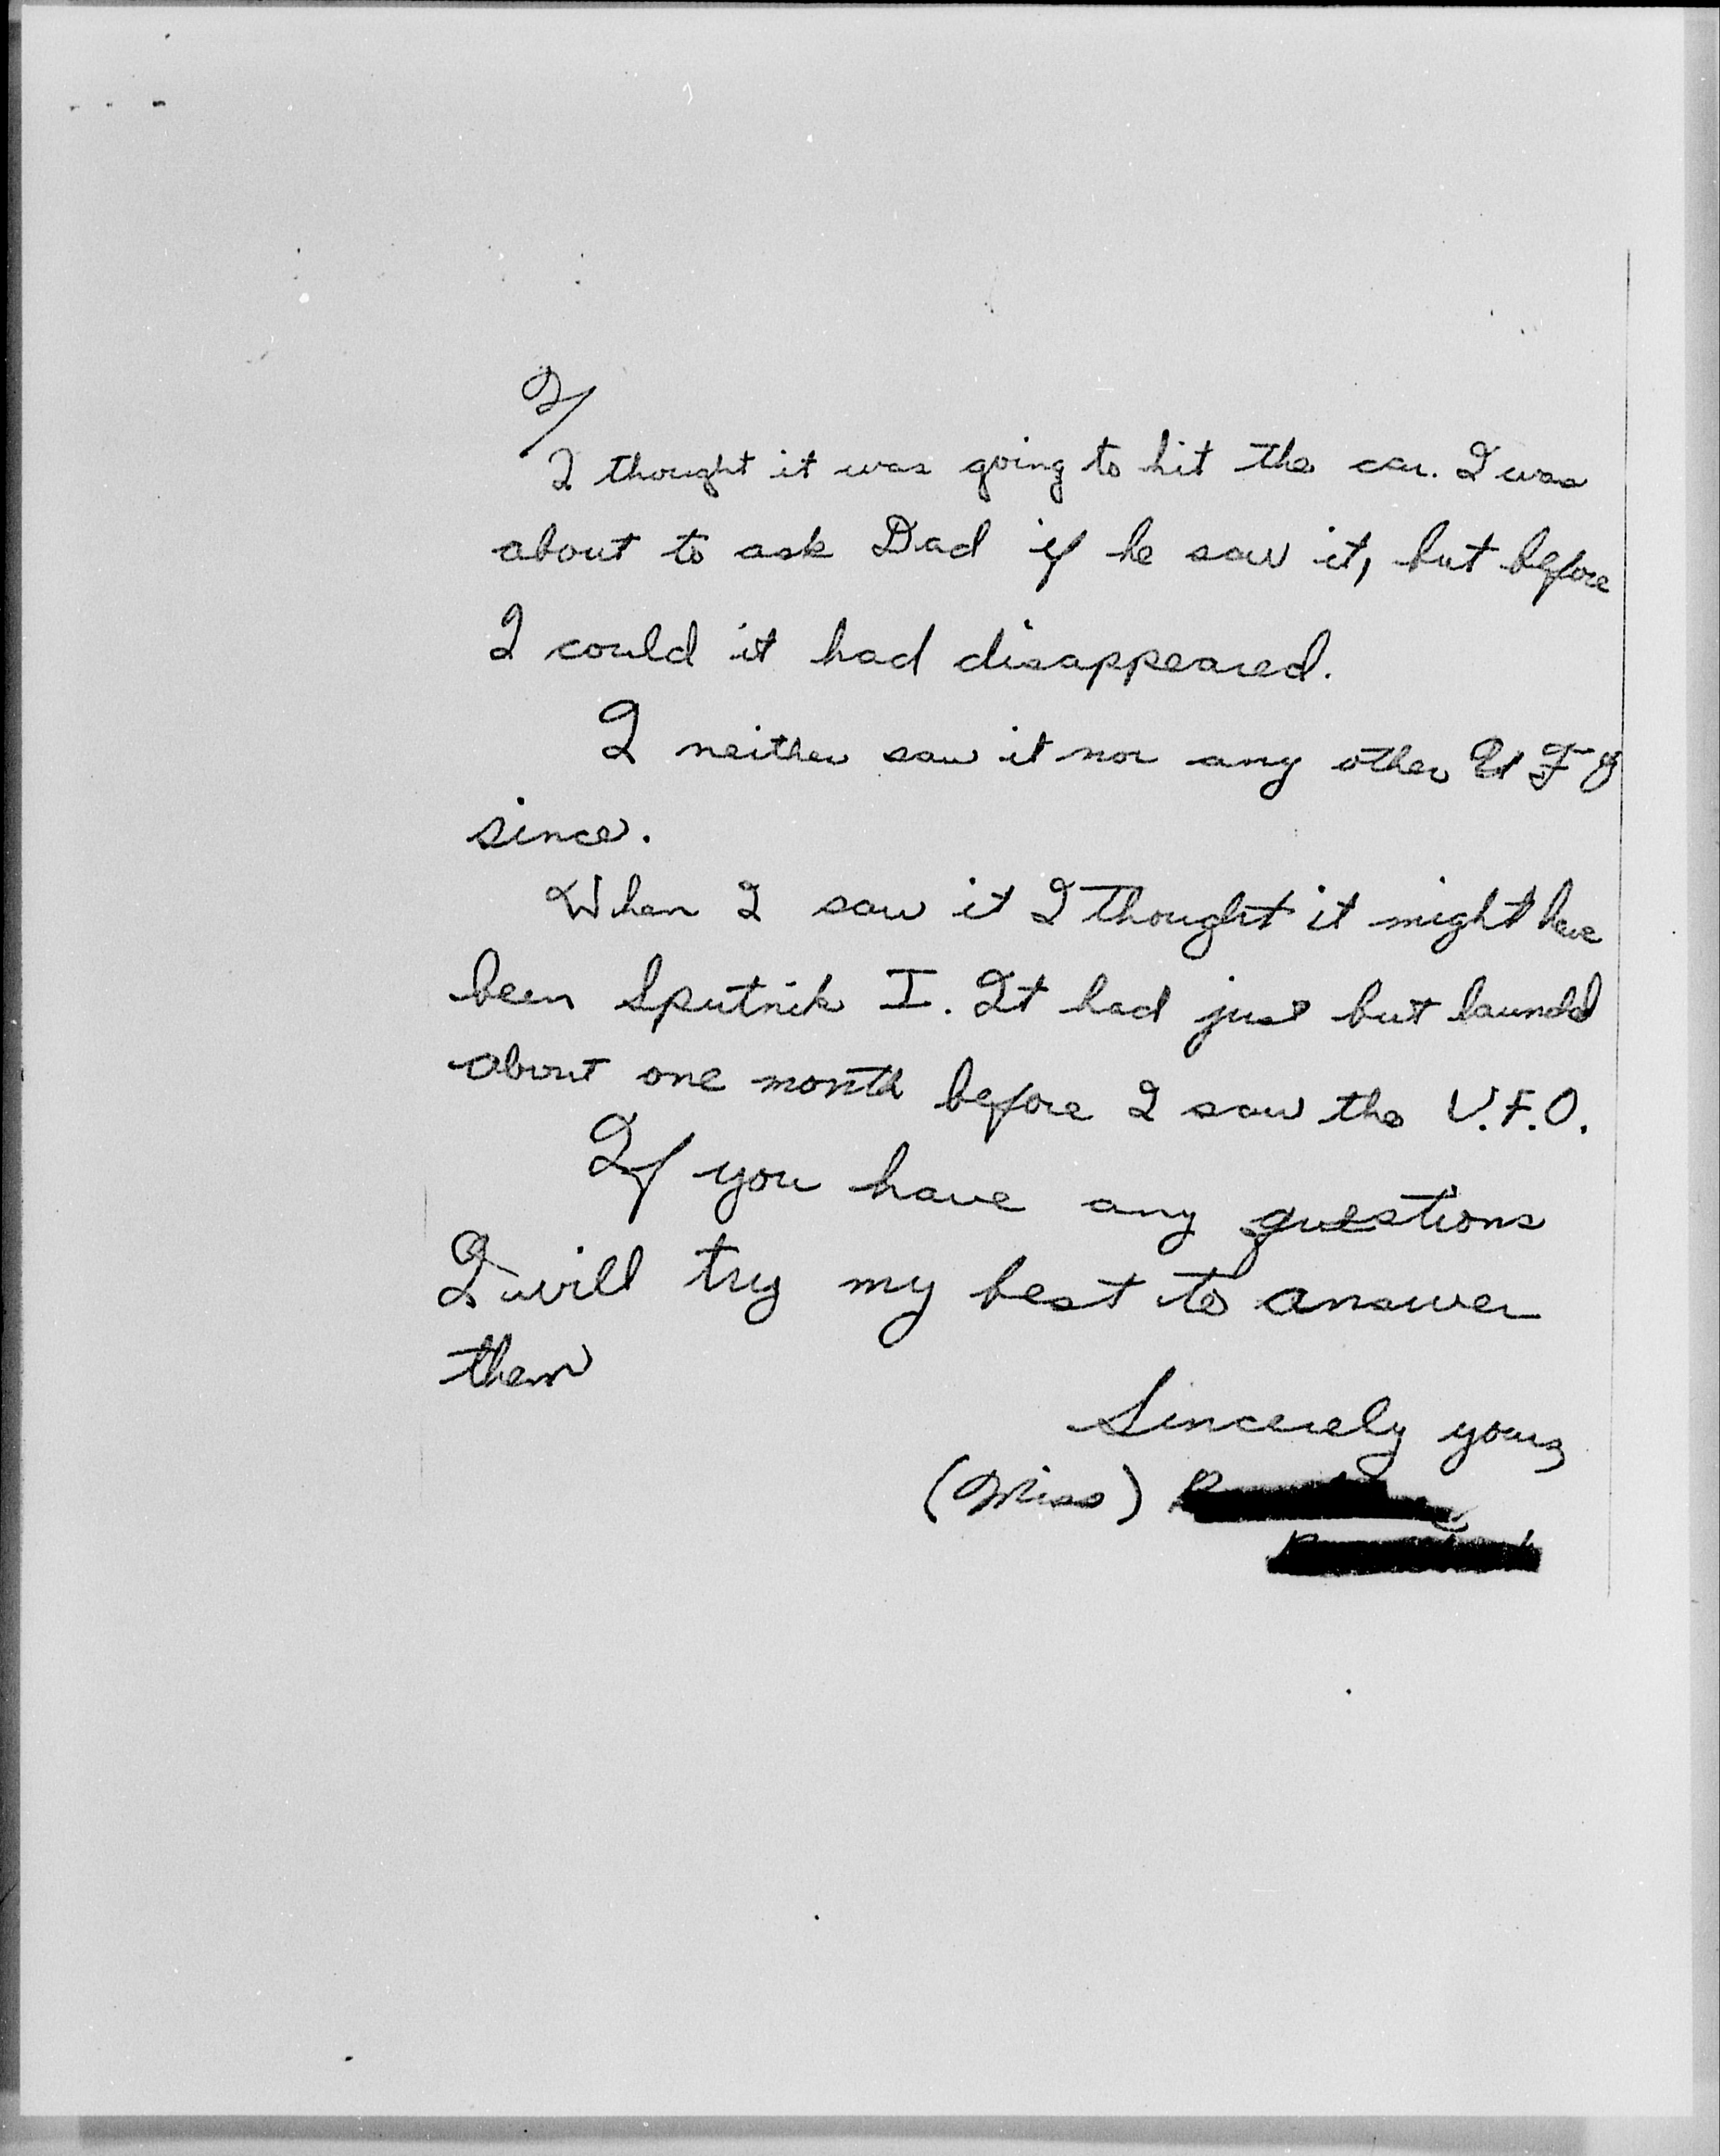 2/
I thought it was going to hit the car. I was
about to ask Dad if he saw it, but before
I could it had disappeared.
I neither saw it nor any other U F O
since.
When I saw it I thought it might have
been Sputnik I. It had just but launchd
about one month before I saw the U.F.O.
If you have any questions
I will try my best to answer
them
Sincerely yours
(Miss)